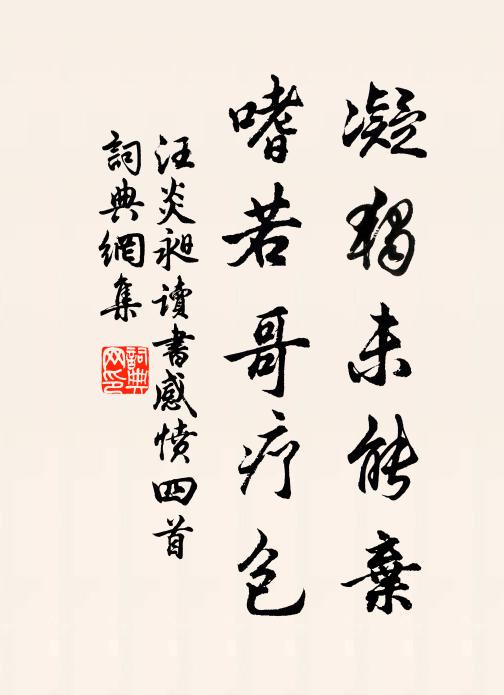 凝獨未能棄
嗜若哥疗包
汪炎昶讀書感憤四首
詞典網集
詞典网印